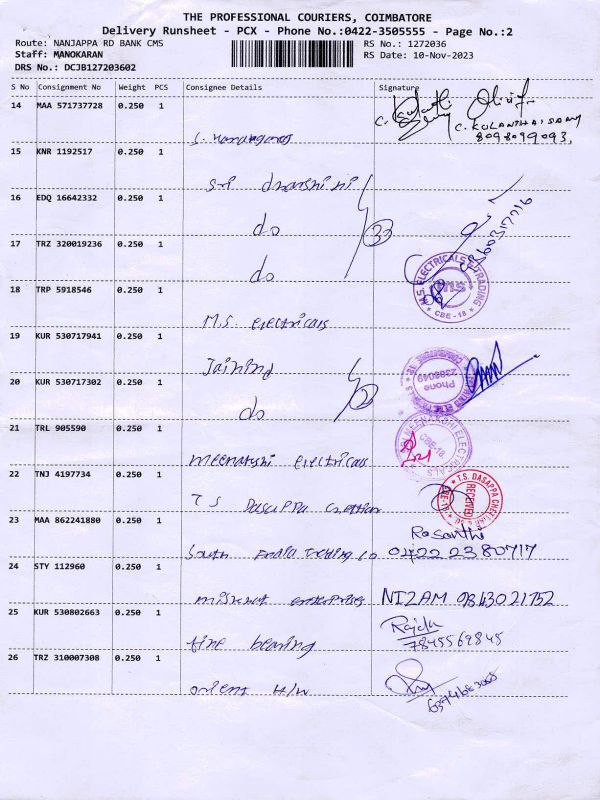 THE PROFESSIONAL COURIERS, COIMBATORE
Delivery Runsheet - PCX - Phone No.:0422-3505555 - Page No.:2
Route: NANJAPPA RD BANK CMS RS No.: 1272036
Staff: MANOKARAN RS Date: 10-Nov-2023
DRS No.: DCJB127203602
S No Consignment No Weight PCS Consignee Details Signature
14 MAA 571737728 0.250 1
C. KOLANTHAISAMY
8098099093,
15 KNR 1192517 0.250 1
Sri
16 EDQ 16642332 0.250 1
do
17 TRZ 320019236 0.250 1
do
M.S. ELECTRICALS & TRADING
CBE-18
18 TRP 5918546 0.250 1
M.S. electricals
19 KUR 530717941 0.250 1
Jaining
Phone
2398049
20 KUR 530717302 0.250 1
do
21 TRL 905590 0.250 1
meenakshi electricals
MEENAKSHI ELECTRICALS
CBE-18.
22 TNJ 4197734 0.250 1
T S Dasappa chettiar
T.S. DASAPPA CHETTIAR
RECEIVED
23 MAA 862241880 0.250 1
Rasanthi
South India Trading co 0422 2380717
24 STY 112960 0.250 1
enterprises NIZAM 9843021752
25 KUR 530802663 0.250 1
Rajela
fine bearing 7845569845
26 TRZ 310007308 0.250 1
orient H/W